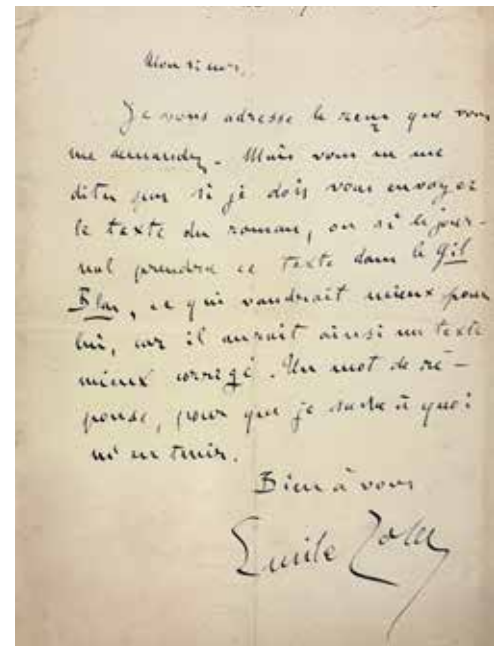 Monsieur,
Je vous adresse le reçu que vous
me demandez. Mais vous ne me
dites pas si je dois vous envoyer
le texte du roman, ou si le jour-
nal prendra ce texte dans le Gil
Blas, ce qui vaudrait mieux pour
lui, car il aurait ainsi un texte
mieux corrigé. Un mot de ré-
ponse, pour que je sache à quoi
m'en tenir.
Bien à vous
Emile Zola